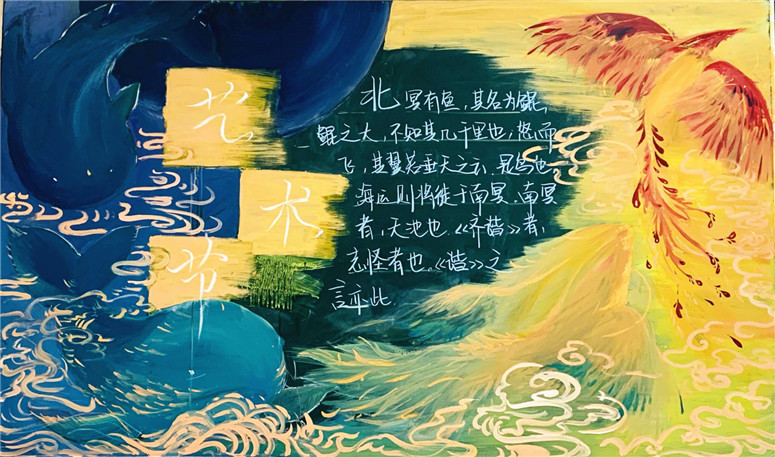 艺
术
节
北冥有鱼，其名为鲲，
鲲之大，不知其几千里也；怒而
飞，其翼若垂天之云，是鸟也
海运则将徙于南冥，南冥
者，天池也。《齐谐》者，
志怪者也。《谐》之
言亦此